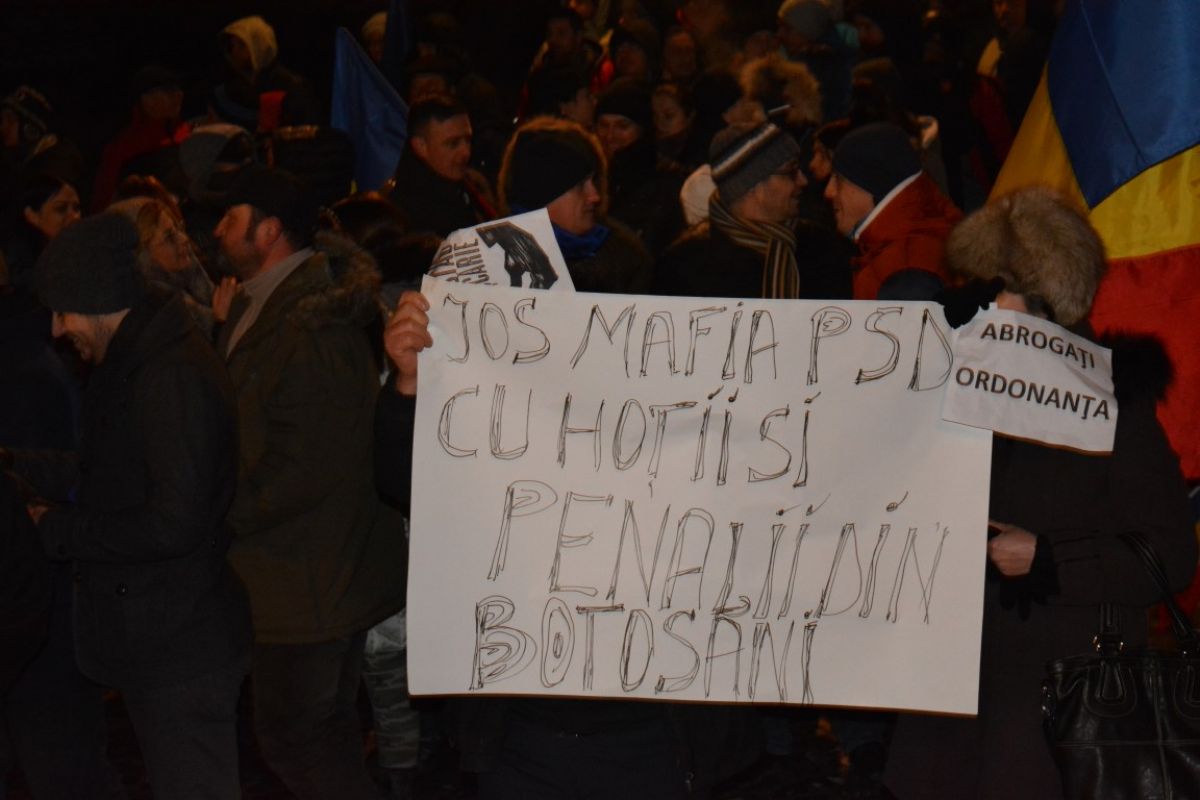 JOS MAFIA PSD
CU HOȚII SI
PENALII DIN
BOTOSANI
ABROGAȚI
ORDONANȚA